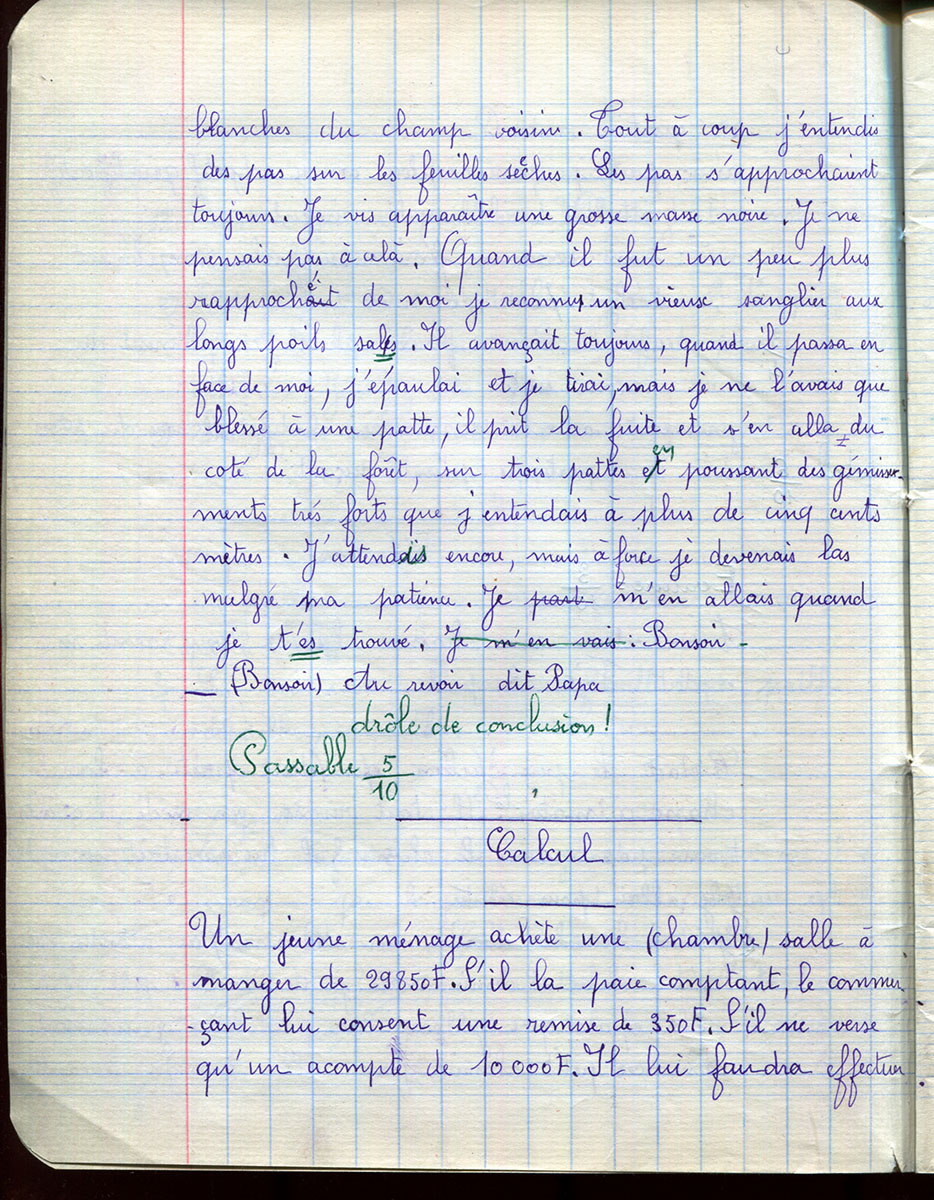 blanches du champ voisins. Tout à coup j'entendis
des pas sur les feuilles sèches. Les pas s'approchaient
toujours. Je vis apparaître une grosse masse noire. Je ne
pensais pas à celà. Quand il fut un peu plus
rapproché de moi je reconnus un vieux sanglier aux
longs poils sales. Il avançait toujours, quand il passa en
face de moi, j'épaulai et je tirai, mais je ne l'avais que
blessé à une patte, il prit la fuite et s'en alla du
coté de la forêt, sur trois pattes en poussant des gémisse-
ments trés forts que j'entendais à plus de cinq cents
mètres. J'attendais encore, mais à force je devenais las
malgré ma patience. Je part m'en allais quand
je t'és trouvé. Je m'en vais : Bonsoir -
_ (Bonsoir) Au revoir dit Papa
drôle de conclusion !
Passable 5/10
Calcul
Un jeune ménage achète une (chambre) salle à
manger de 29850F. S'il la paie comptant, le commer
-çant lui consent une remise de 350F. S'il ne verse
qu'un acompte de 10000F. Il lui faudra effectuer